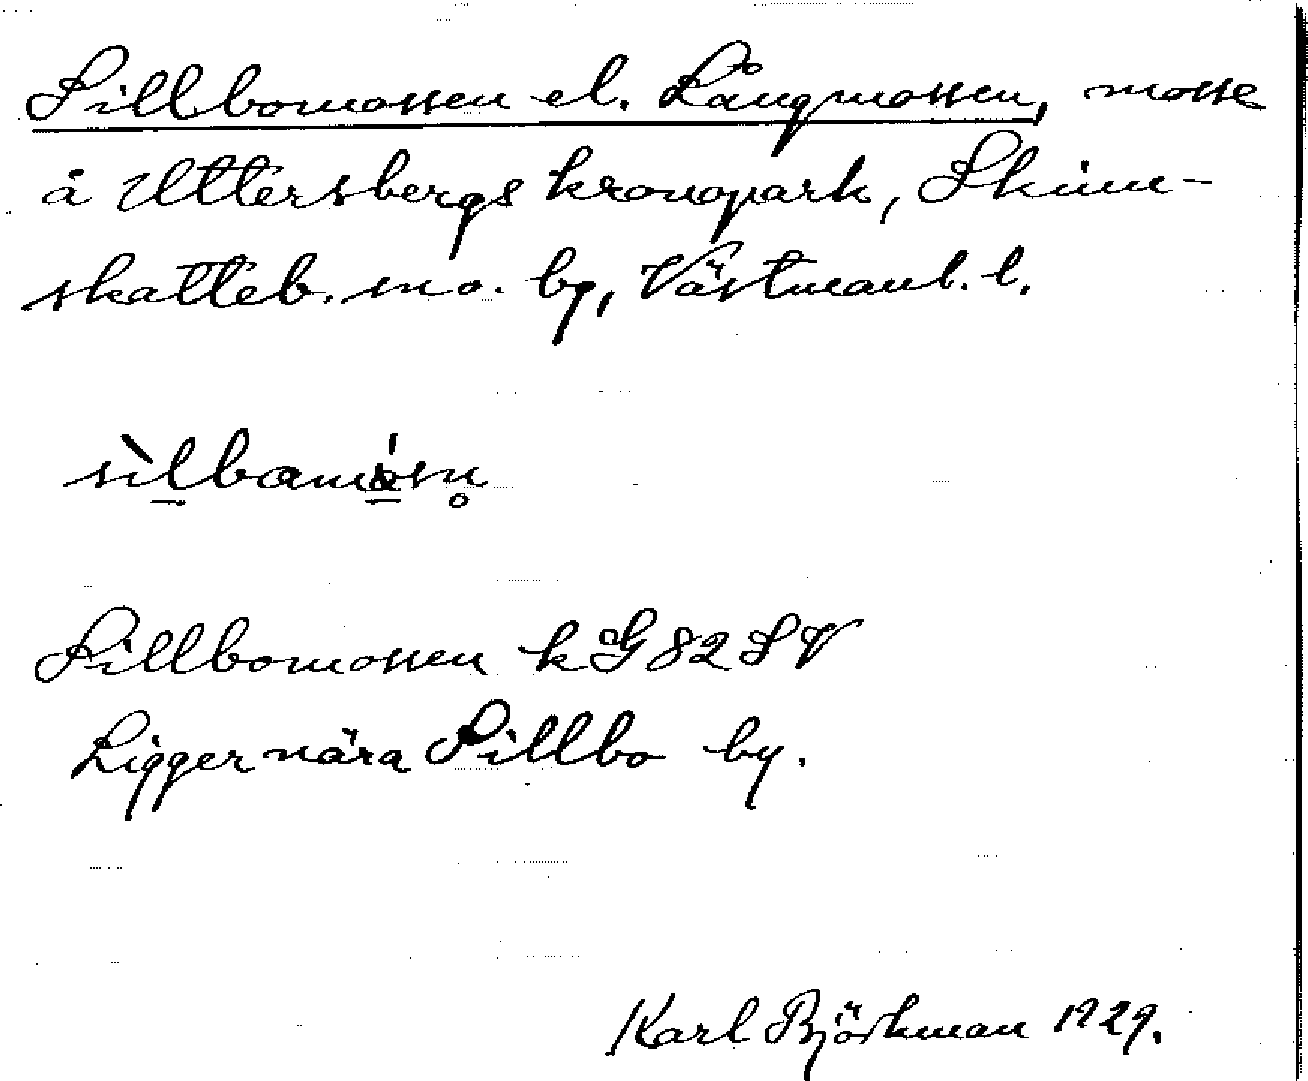 Sillbomossen el. Långmossen, mosse
å Uttersbergs kronopark, Skinn-
skatteb. sn o. bg, Västmanl. l.
sìlbamósn̥
Sillbomossen k G 82 S V
Ligger nära Sillbo by.
Karl Björkman 1929.